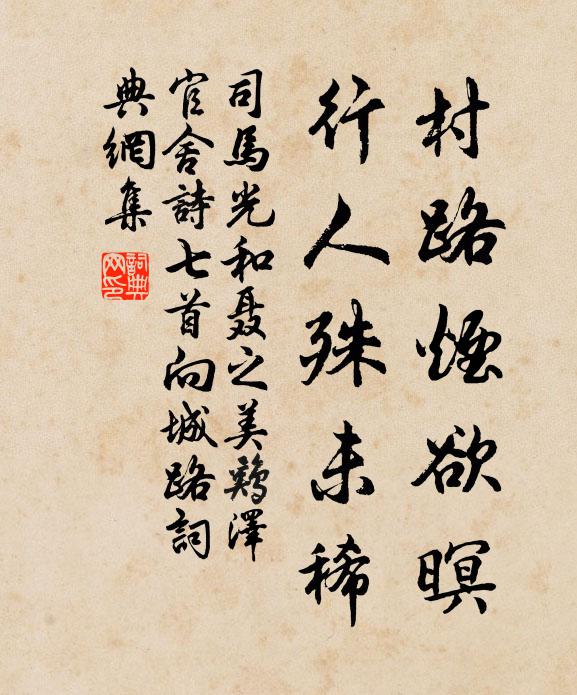 村路煙欲暝
行人殊未稀
司馬光和聂之美鷄澤
官舍詩七首向城路詞
典網集
詞典
网印